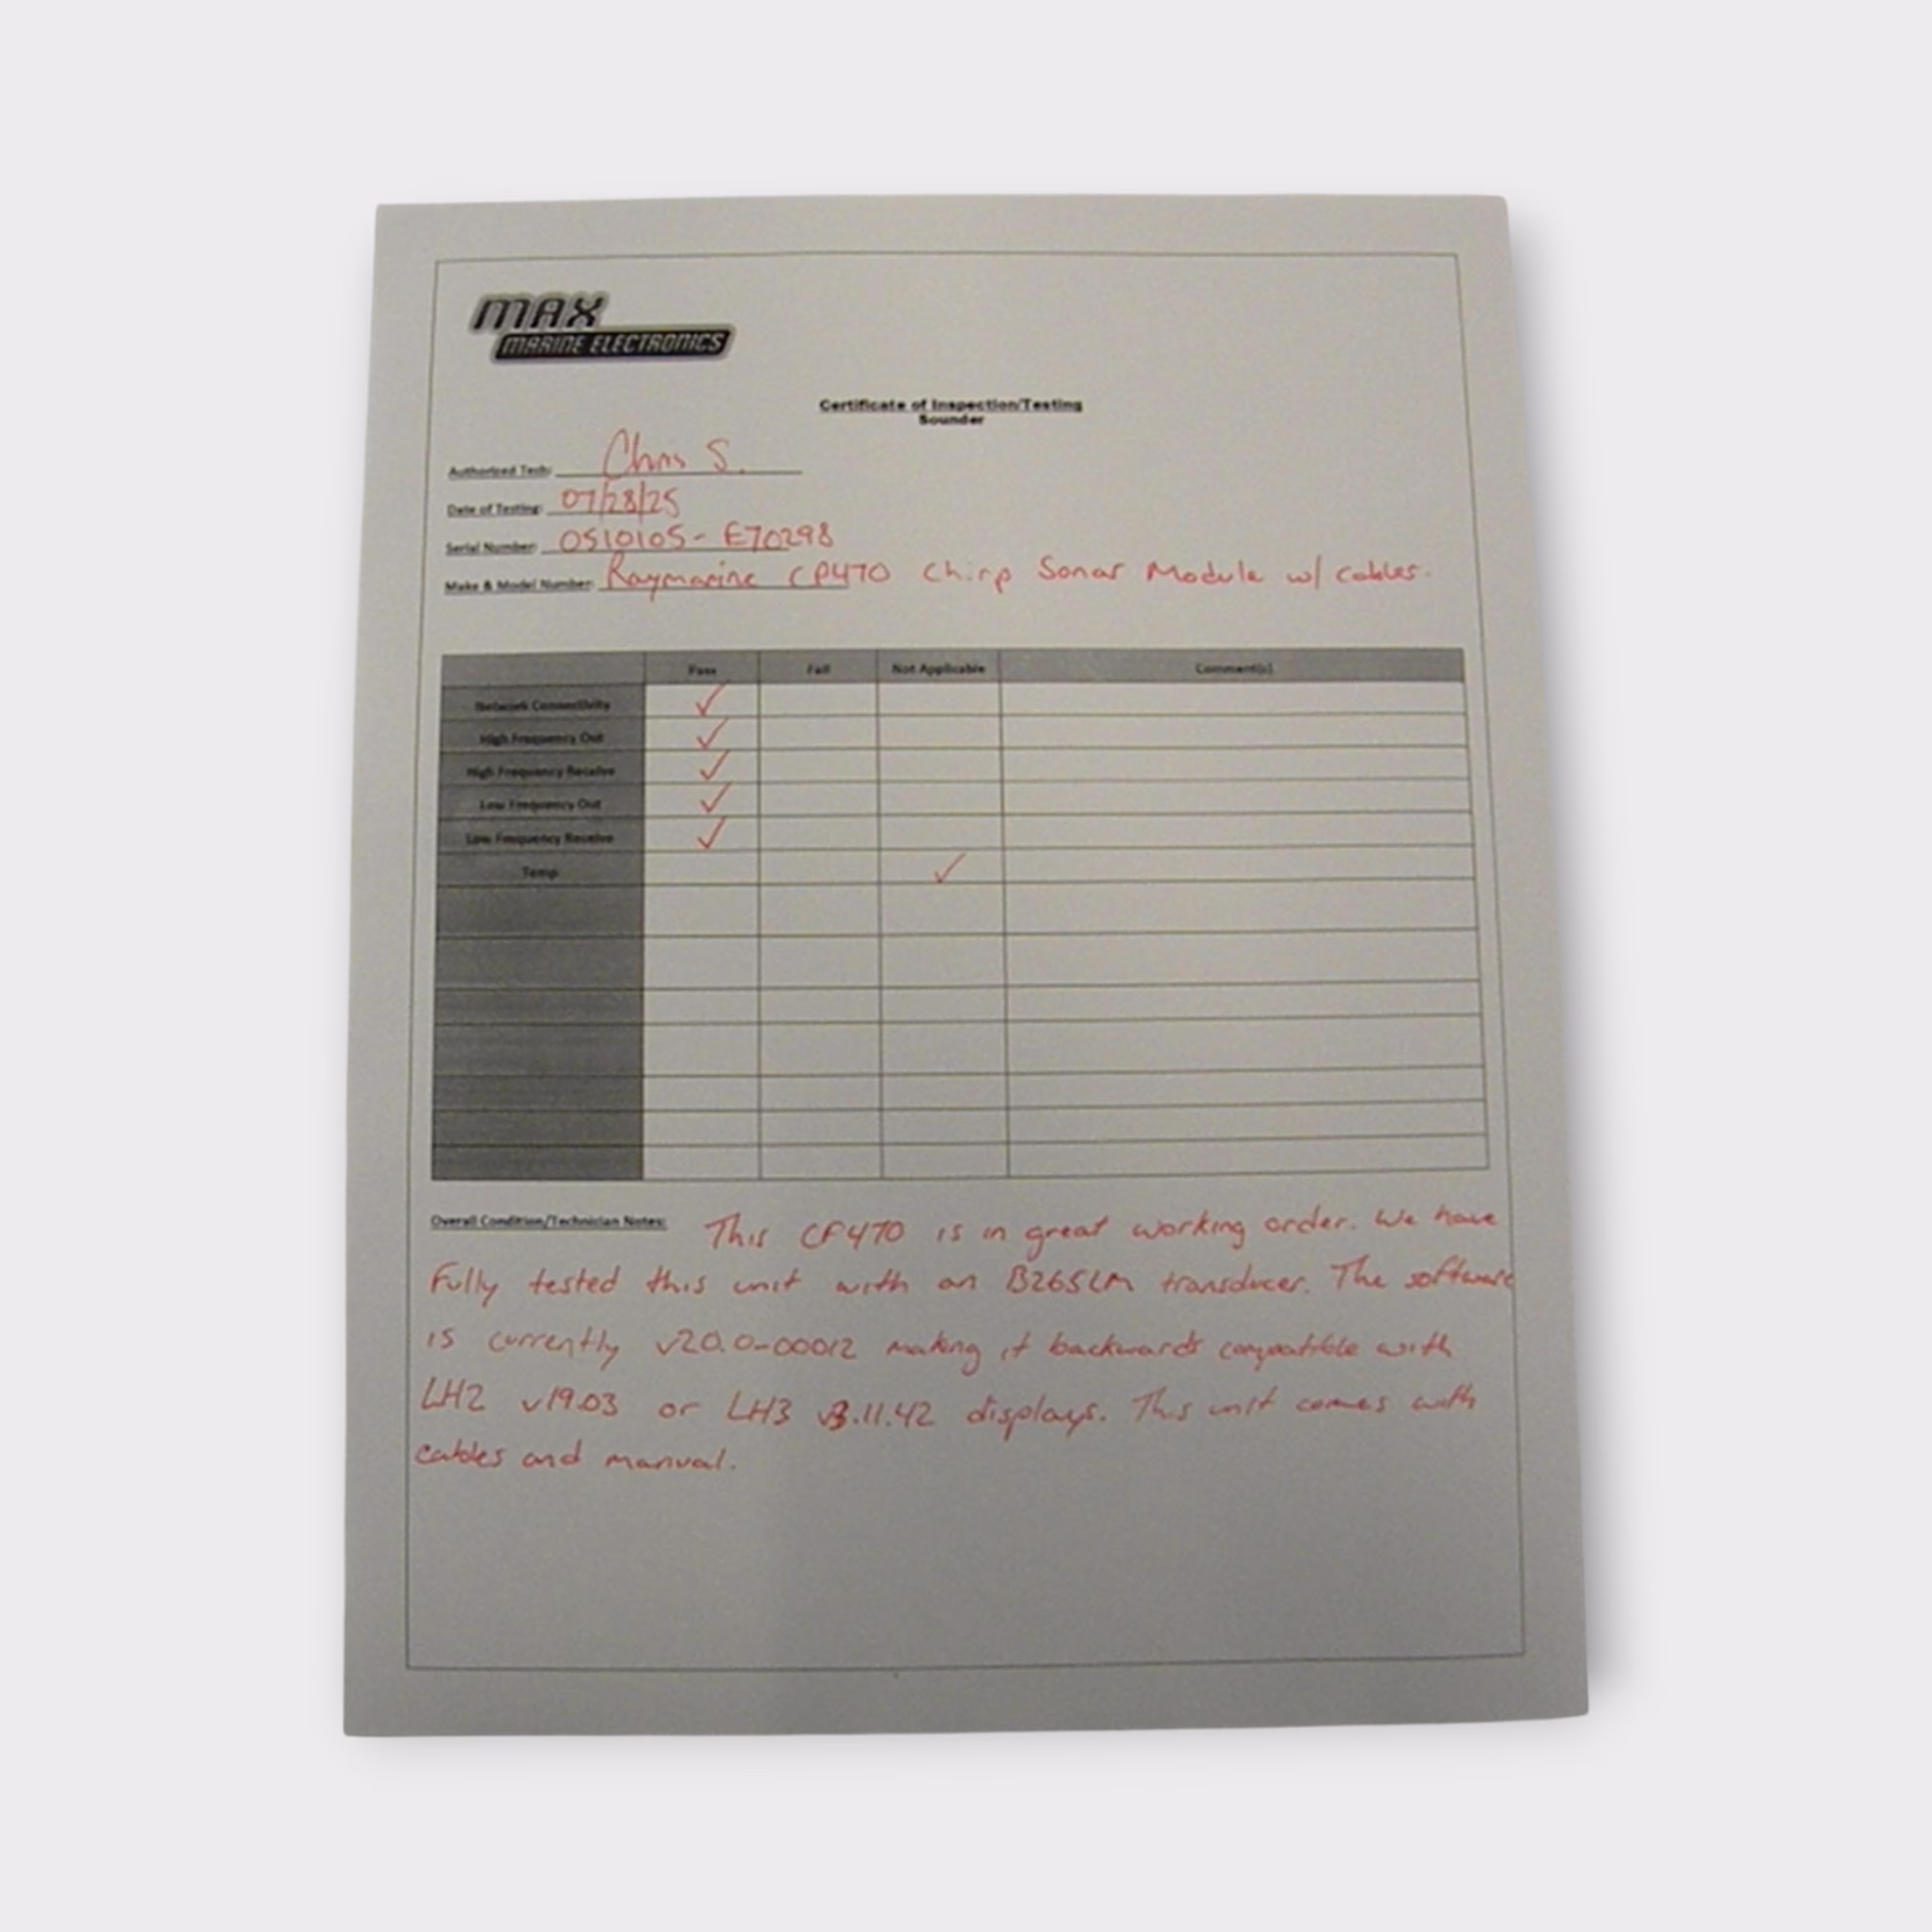 MAX
MARINE ELECTRONICS
Certificate of Inspection/Testing
Sounder
Authorized Tech: Chris S.
Date of Testing: 07/28/25
Serial Number: 0510105- E70298
Make & Model Number: Raymarine CP470 Chirp Sonar Module w/ cables.
Pass Fail Not Applicable Comment(s)
Network Connectivity ✓
High Frequency Out ✓
High Frequency Receive ✓
Low Frequency Out ✓
Low Frequency Receive ✓
Temp ✓
Overall Condition/Technician Notes: This CP470 is in great working order. We have
fully tested this unit with an B265LM transducer. The software
is currently v20.0-00012 making it backwards compatible with
LH2 v19.03 or LH3 v3.11.42 displays. This unit comes with
cables and manual.